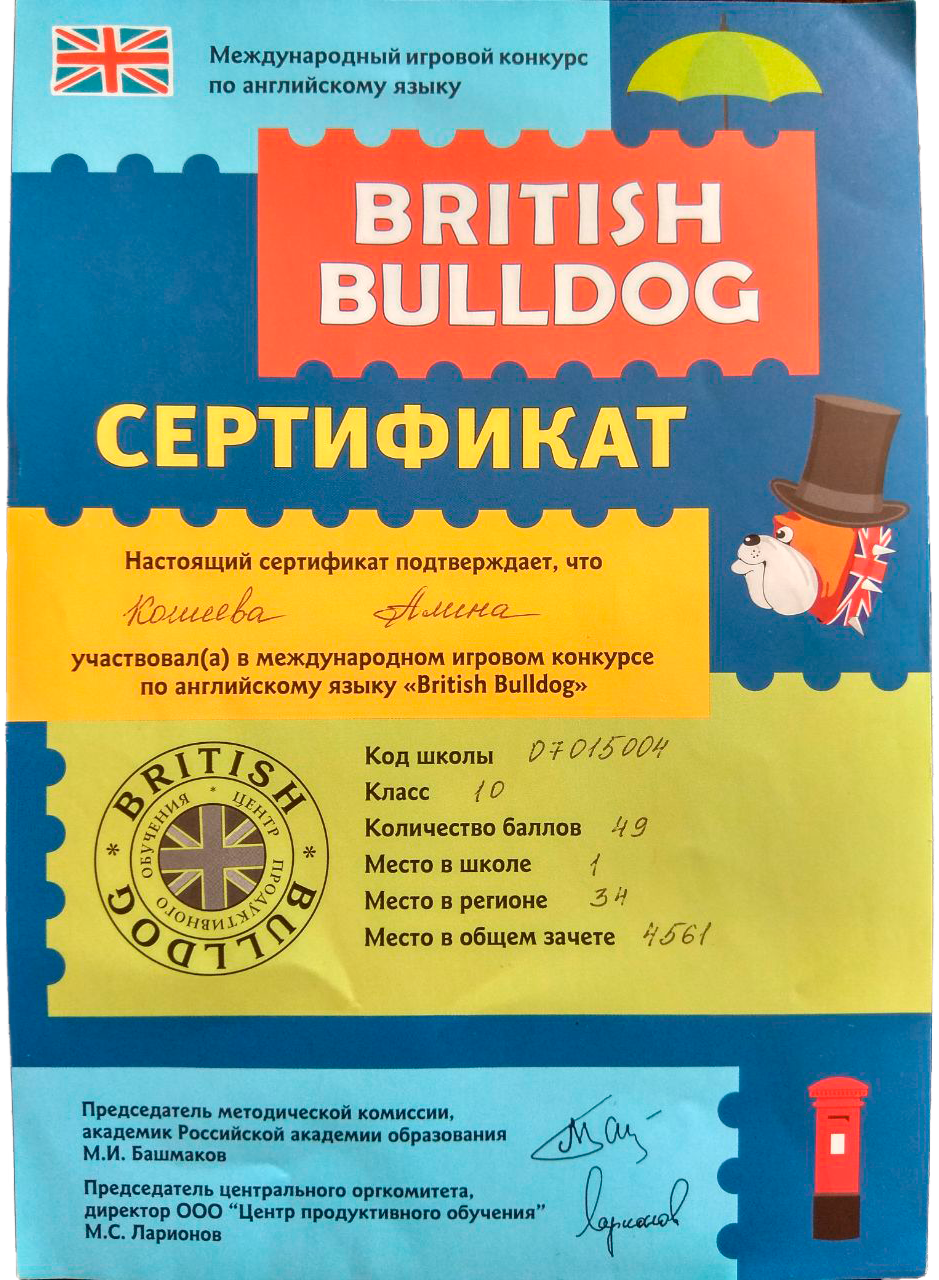 Международный игровой конкурс
по английскому языку
BRITISH
BULLDOG
СЕРТИФИКАТ
Настоящий сертификат подтверждает, что
Кошева Алина
участвовал(а) в международном игровом конкурсе
по английскому языку «British Bulldog»
BRITISH BULLDOG
ЦЕНТР ПРОДУКТИВНОГО ОБУЧЕНИЯ
Код школы 07015004
Класс 10
Количество баллов 49
Место в школе 1
Место в регионе 34
Место в общем зачете 4561
Председатель методической комиссии,
академик Российской академии образования
М.И. Башмаков
Председатель центрального оргкомитета,
директор ООО “Центр продуктивного обучения”
М.С. Ларионов